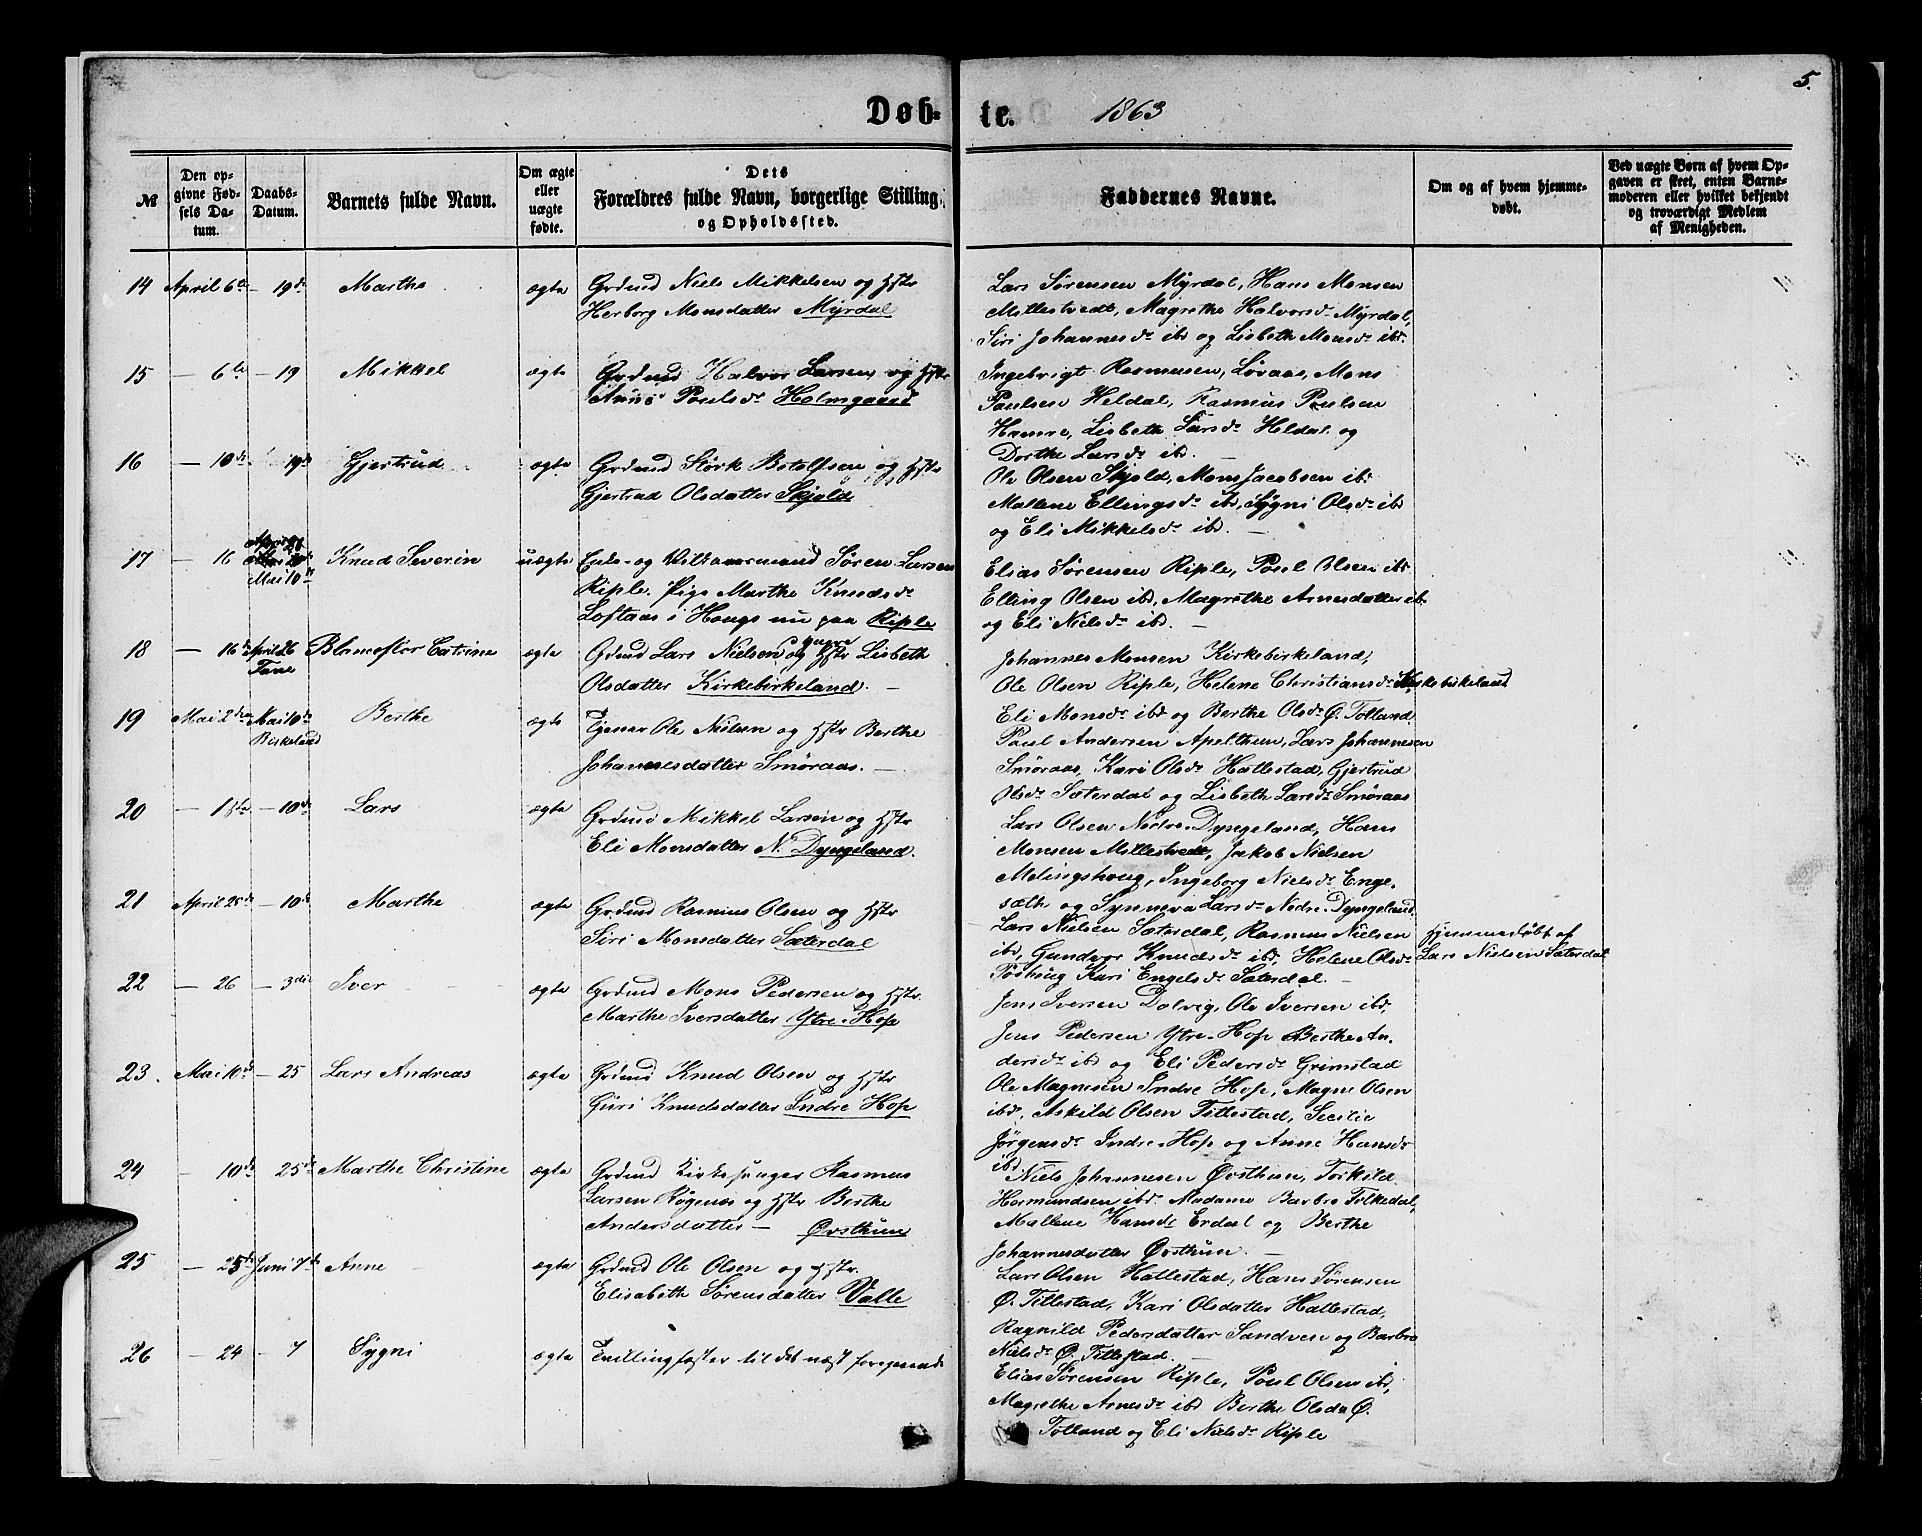 5.
Døb=te. 1863
№
Den op-
givne Fød-
sels Da-
tum.
Daabs-
Datum.
Barnets fulde Navn.
Om ægte
eller
uægte
fødte.
Dets
Forældres fulde Navn, borgerlige Stilling
og Opholdssted.
Faddernes Navne.
Om og af hvem hjemme-
døbt.
Ved uægte Børn af hvem Op-
gaven er skeet, enten Barne-
moderen eller hvilket bekjendt
og troværdigt Medlem
af Menigheden.
14 April 6te — 19de Marthe ægte Grdmd Niels Mikkelsen og Hstr
Herborg Monsdatter Myrdal
Lars Sørensen Myrdal, Hans Monsen
Millestvedt, Magrethe Halvorsdr Myrdal,
Siri Johannesdr ibd og Lisbeth Monsdr ibd.
15 — 6te — 19 Mikkel ægte Grdmd Halvor Larsen og Hstr
Anne Poulsdr Holmgaard
Ingebrigt Rasmusen, Løvaas, Mons
Paulsen Heldal, Rasmus Poulsen
Hamre, Lisbeth Larsdr Heldal og
Dorthe Larsdr ibd. —
16 — 10de 19de Gjertrud ægte Grdmd Størk Botolfsen og Hstr
Gjertrud Olsdatter Skjold
Ole Olsen Skjold, Mons Jacobsen ibd
Mallene Ellingsdr ibd, Sygni Olsdr ibd
og Eli Mikkelsdr ibd. —
17 — 16 Mai 10de Knud Severin uægte Enke- og Vilkaarsmand Søren Larsen
Riple. Pige Marthe Knudsdr
Loftaas i Hougs nu paa Riple
Elias Sørensen Riple, Poul Olsen ibd
Elling Olsen ibd, Magrethe Arnesdatter ib
og Eli Nielsdr ibd. —
18 — 16de April 26 Fane Blanceflor Catrine ægte Grdmd Lars Nielsen yngre og Hstr Lisbeth
Olsdatter Kirkebirkeland. —
Johannes Monsen Kirkebirkeland,
Ole Olsen Riple, Helene Christiansdr Kirkebirkeland
Eli Monsdr ibd og Berthe Olsdr Ø. Tolland.
19 Mai 2den Mai 10de Birkeland Berthe ægte Tjener Ole Nielsen og Hstr Berthe
Johannesdatter Smøraas. —
Poul Andersen Apelthun, Lars Johannesen
Smøraas, Kari Olsdr Hallestad, Gjertrud
Olsdr Sæterdal og Lisbeth Larsdr Smøraas
20 — 1ste — 10de Lars ægte Grdmd Mikkel Larsen og Hstr
Eli Monsdatter N. Dyngeland.
Lars Olsen Nedre-Dyngeland, Hans
Monsen Millestvedt, Jakob Nielsen
Melingshoug, Ingeborg Nielsdr Enge-
sæth og Synneva Larsdr Nedre-Dyngeland.
21 April 25de — 10de Marthe ægte Grdmd Rasmus Olsen og Hstr
Siri Monsdatter Sæterdal
Lars Nielsen Sæterdal, Rasmus Nielsen
ibd, Gundvor Knudsdr ibd, Helene Olsdr
Kari Engelsdr Sæterdal. —
Hjemmedøbt af
Lars Nielsen Sæterdal
22 — 26 — 3die Iver ægte Grdmd Mons Pedersen og Hstr.
Marthe Iversdatter Ytre-Hop
Jens Iversen Dolvig, Ole Iversen ibd,
Jens Pedersen Ytre-Hop Berthe An-
dersdr ibd og Eli Pedersdr Grimstad
23. Mai 10de — 25 Lars Andreas ægte Grdmd Knud Olsen og Hstr
Guri Knudsdatter Indre Hop
Ole Magnesen Indre Hop, Magne Olsen
ibd, Askild Olsen Tillestad, Secilie
Jørgensdr Indre-Hop og Anne Hansdr
ibd
24 — 10de 25de Marthe Christine ægte Grdmd Kirkesanger Rasmus
Larsen Røgenes og Hstr Berthe
Andersdatter — Øvsthun
Niels Johannesen Øvsthun, Torkild
Hormundsen ibd. Madame Barbro Folkedal,
Mallene Hansdr Erdal og Berthe
Johannesdatter Øvsthun. —
25 — 25de Juni 7de Anne ægte Grdmd Ole Olsen og Hstr.
Elisabeth Sørensdatter Valle
Lars Olsen Hallestad, Hans Sørensen
Ø. Tillestad, Kari Olsdatter Hallestad,
Ragnild Pedersdatter Sandven og Barbro
Nielsdr Ø. Tillestad. —
26 — 24 — 7 Sygni ægte Tvillingsøster til det næst foregaaende
Elias Sørensen Riple, Poul Olsen ibd,
Magrethe Arnesdr ibd Berthe Olsdr Ø.
Tolland og Eli Nielsdr Riple